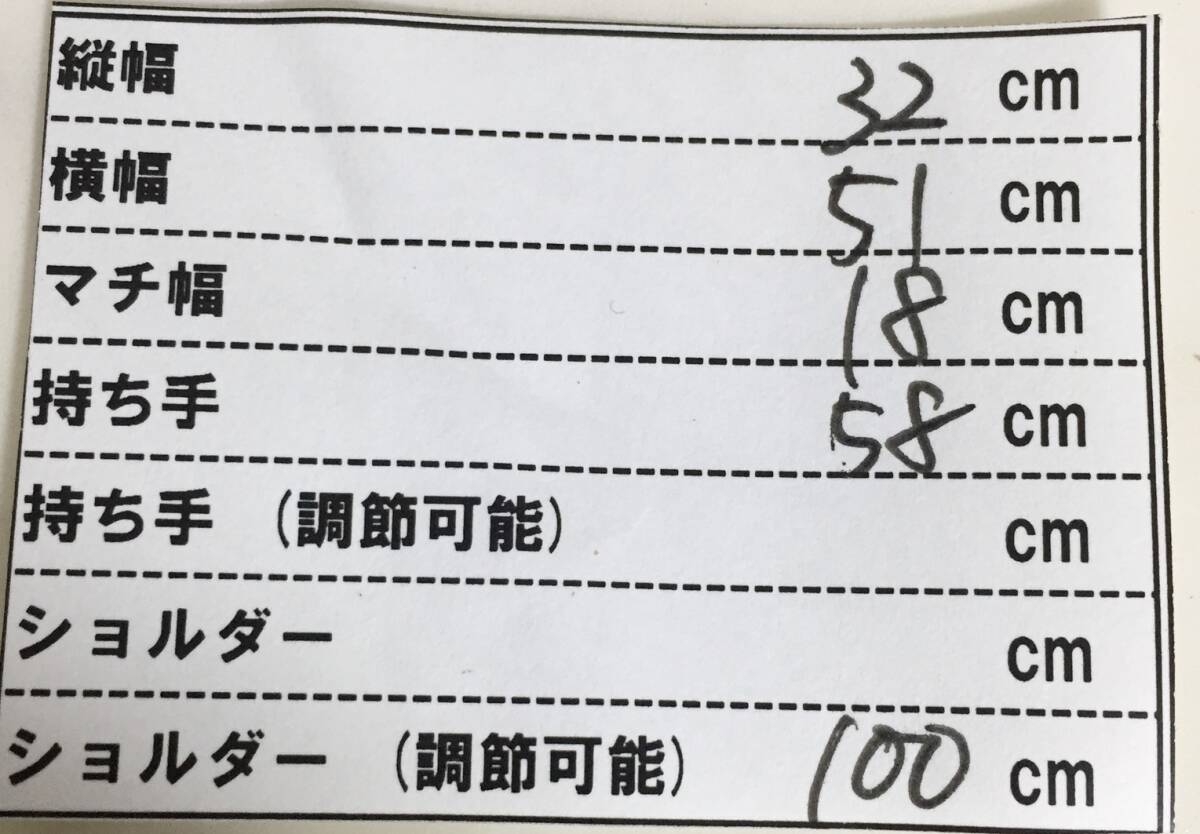 縦幅 32 cm
横幅 51 cm
マチ幅 18 cm
持ち手 58 cm
持ち手 (調節可能) cm
ショルダー cm
ショルダー (調節可能) 100 cm